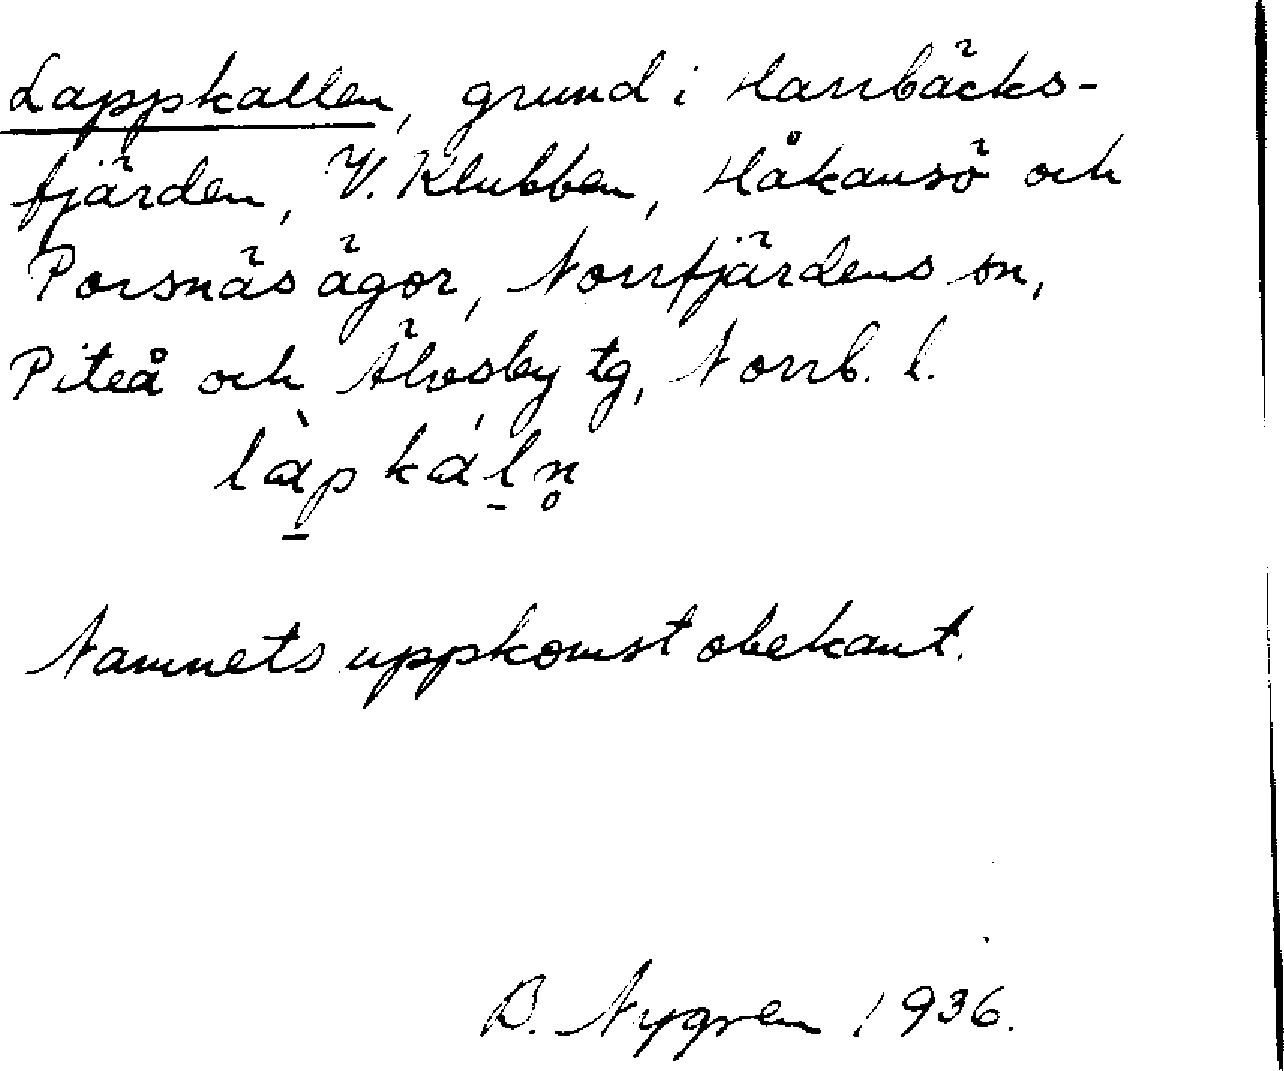 Lappkallen, grund i Harrbäcks-
fjärden, V. Klubben, Håkansö och
Porsnäs ägor, Norrfjärdens sn,
Piteå och Älvsby tg, Norrb. l.
là̖p̱káḻn̥
Namnets uppkomst obekant.
B. Nygren 1936.